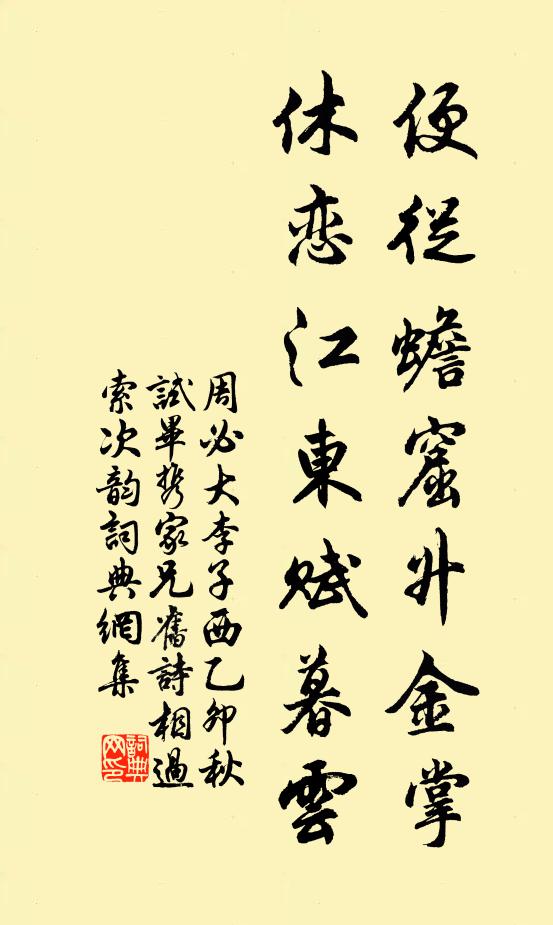 便從蟾窟升金掌
休恋江東賦暮雲
周必大李子西乙卯秋
試畢携家兄舊詩相過
索次韵詞典網集
詞典
网印